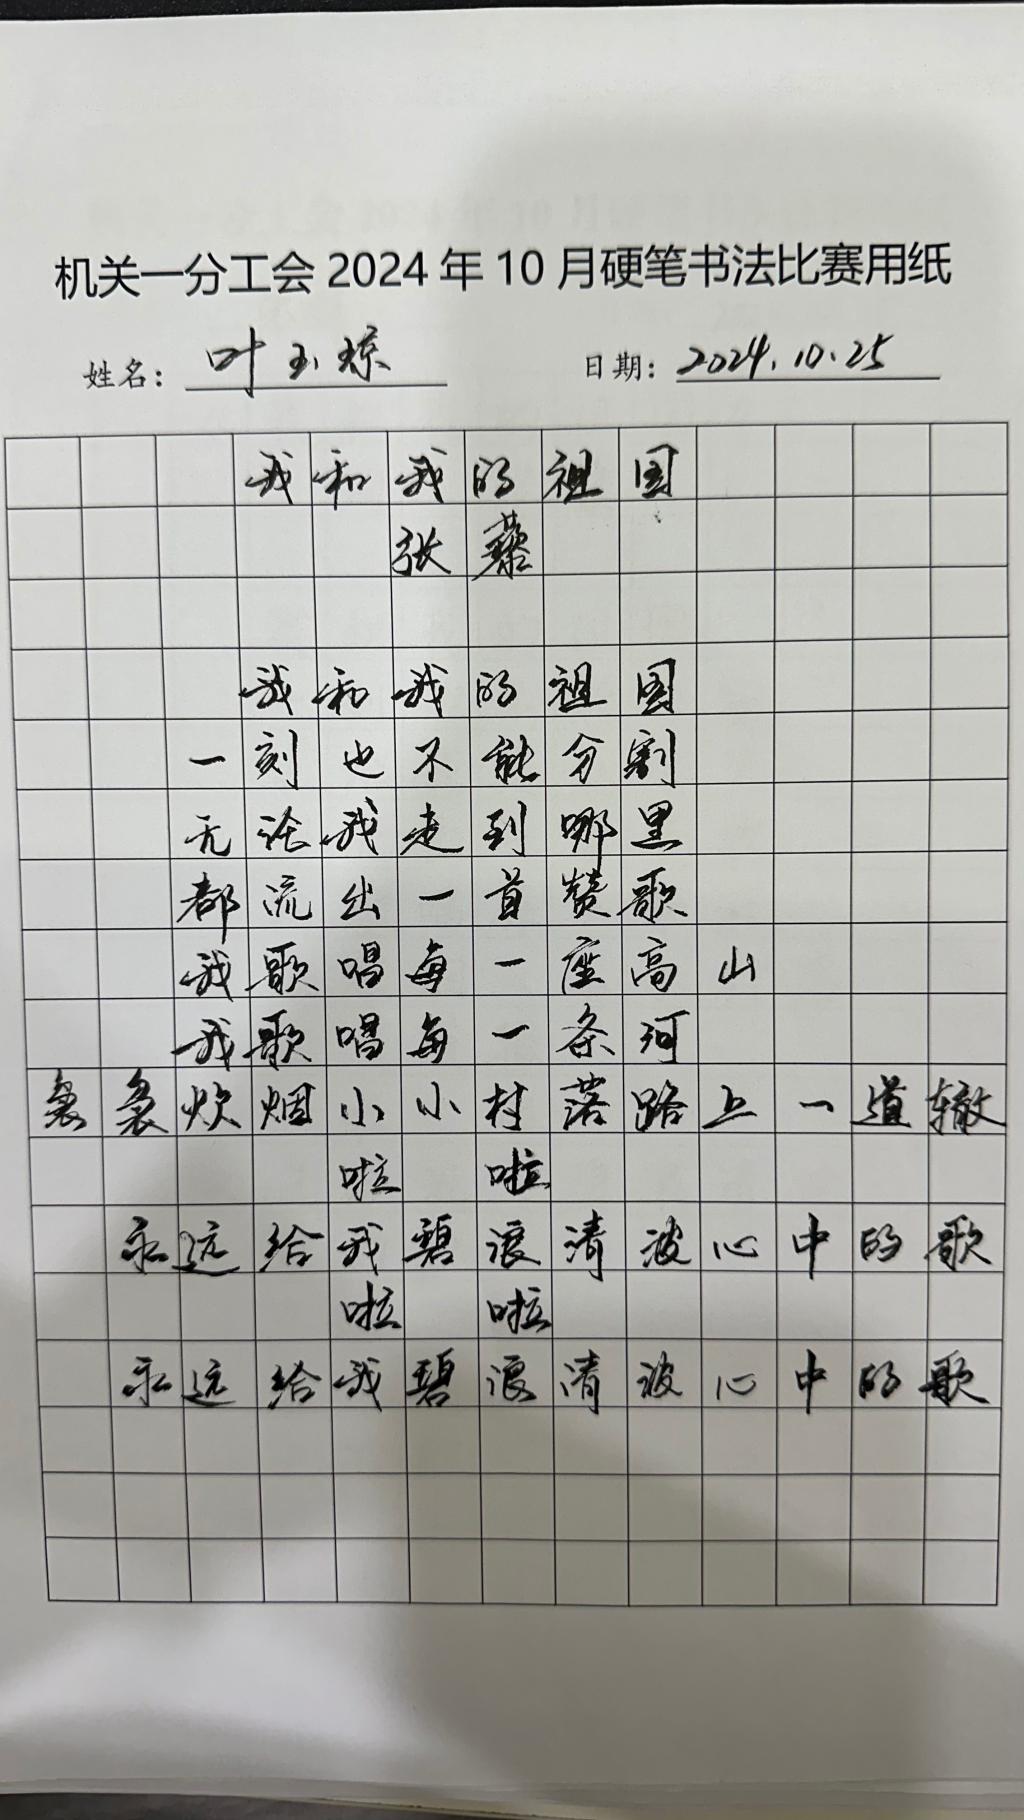 机关一分工会2024年10月硬笔书法比赛用纸
姓名：叶玉琼 日期：2024.10.25
我和我的祖国
张藜
我和我的祖国
一刻也不能分割
无论我走到哪里
都流出一首赞歌
我歌唱每一座高山
我歌唱每一条河
袅袅炊烟小小村落路上一道辙
啦 啦
永远给我碧浪清波心中的歌
啦 啦
永远给我碧浪清波心中的歌